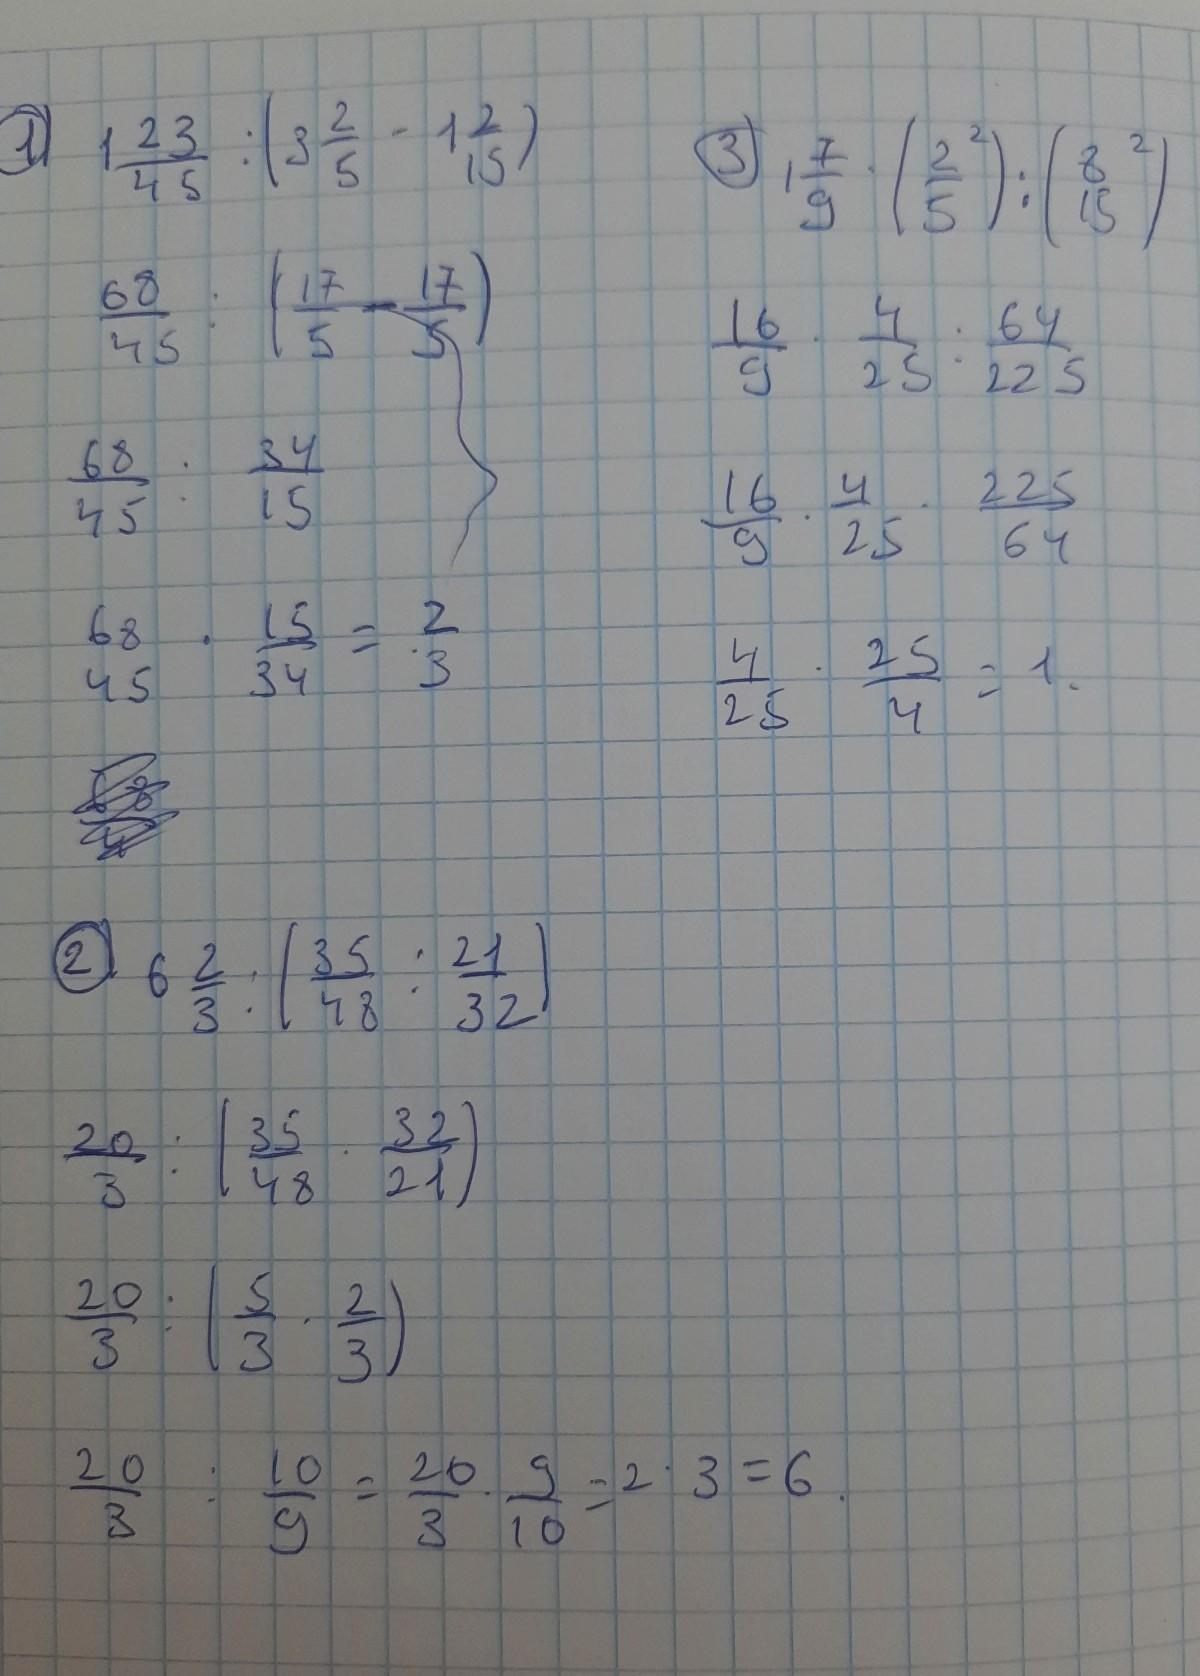 1) 1 23/45 : (3 2/5 - 1 2/15)
68/45 : (17/5 - 17/5)
68/45 : 34/15
68/45 · 15/34 = 2/3
2) 6 2/3 : (35/48 : 21/32)
20/3 : (35/48 · 32/21)
20/3 : (5/3 · 2/3)
20/3 : 10/9 = 20/3 · 9/10 = 2 · 3 = 6.
3) 1 7/9 · (2²/5) : (8²/15)
16/9 · 4/25 : 64/225
16/9 · 4/25 · 225/64
4/25 · 25/4 = 1.